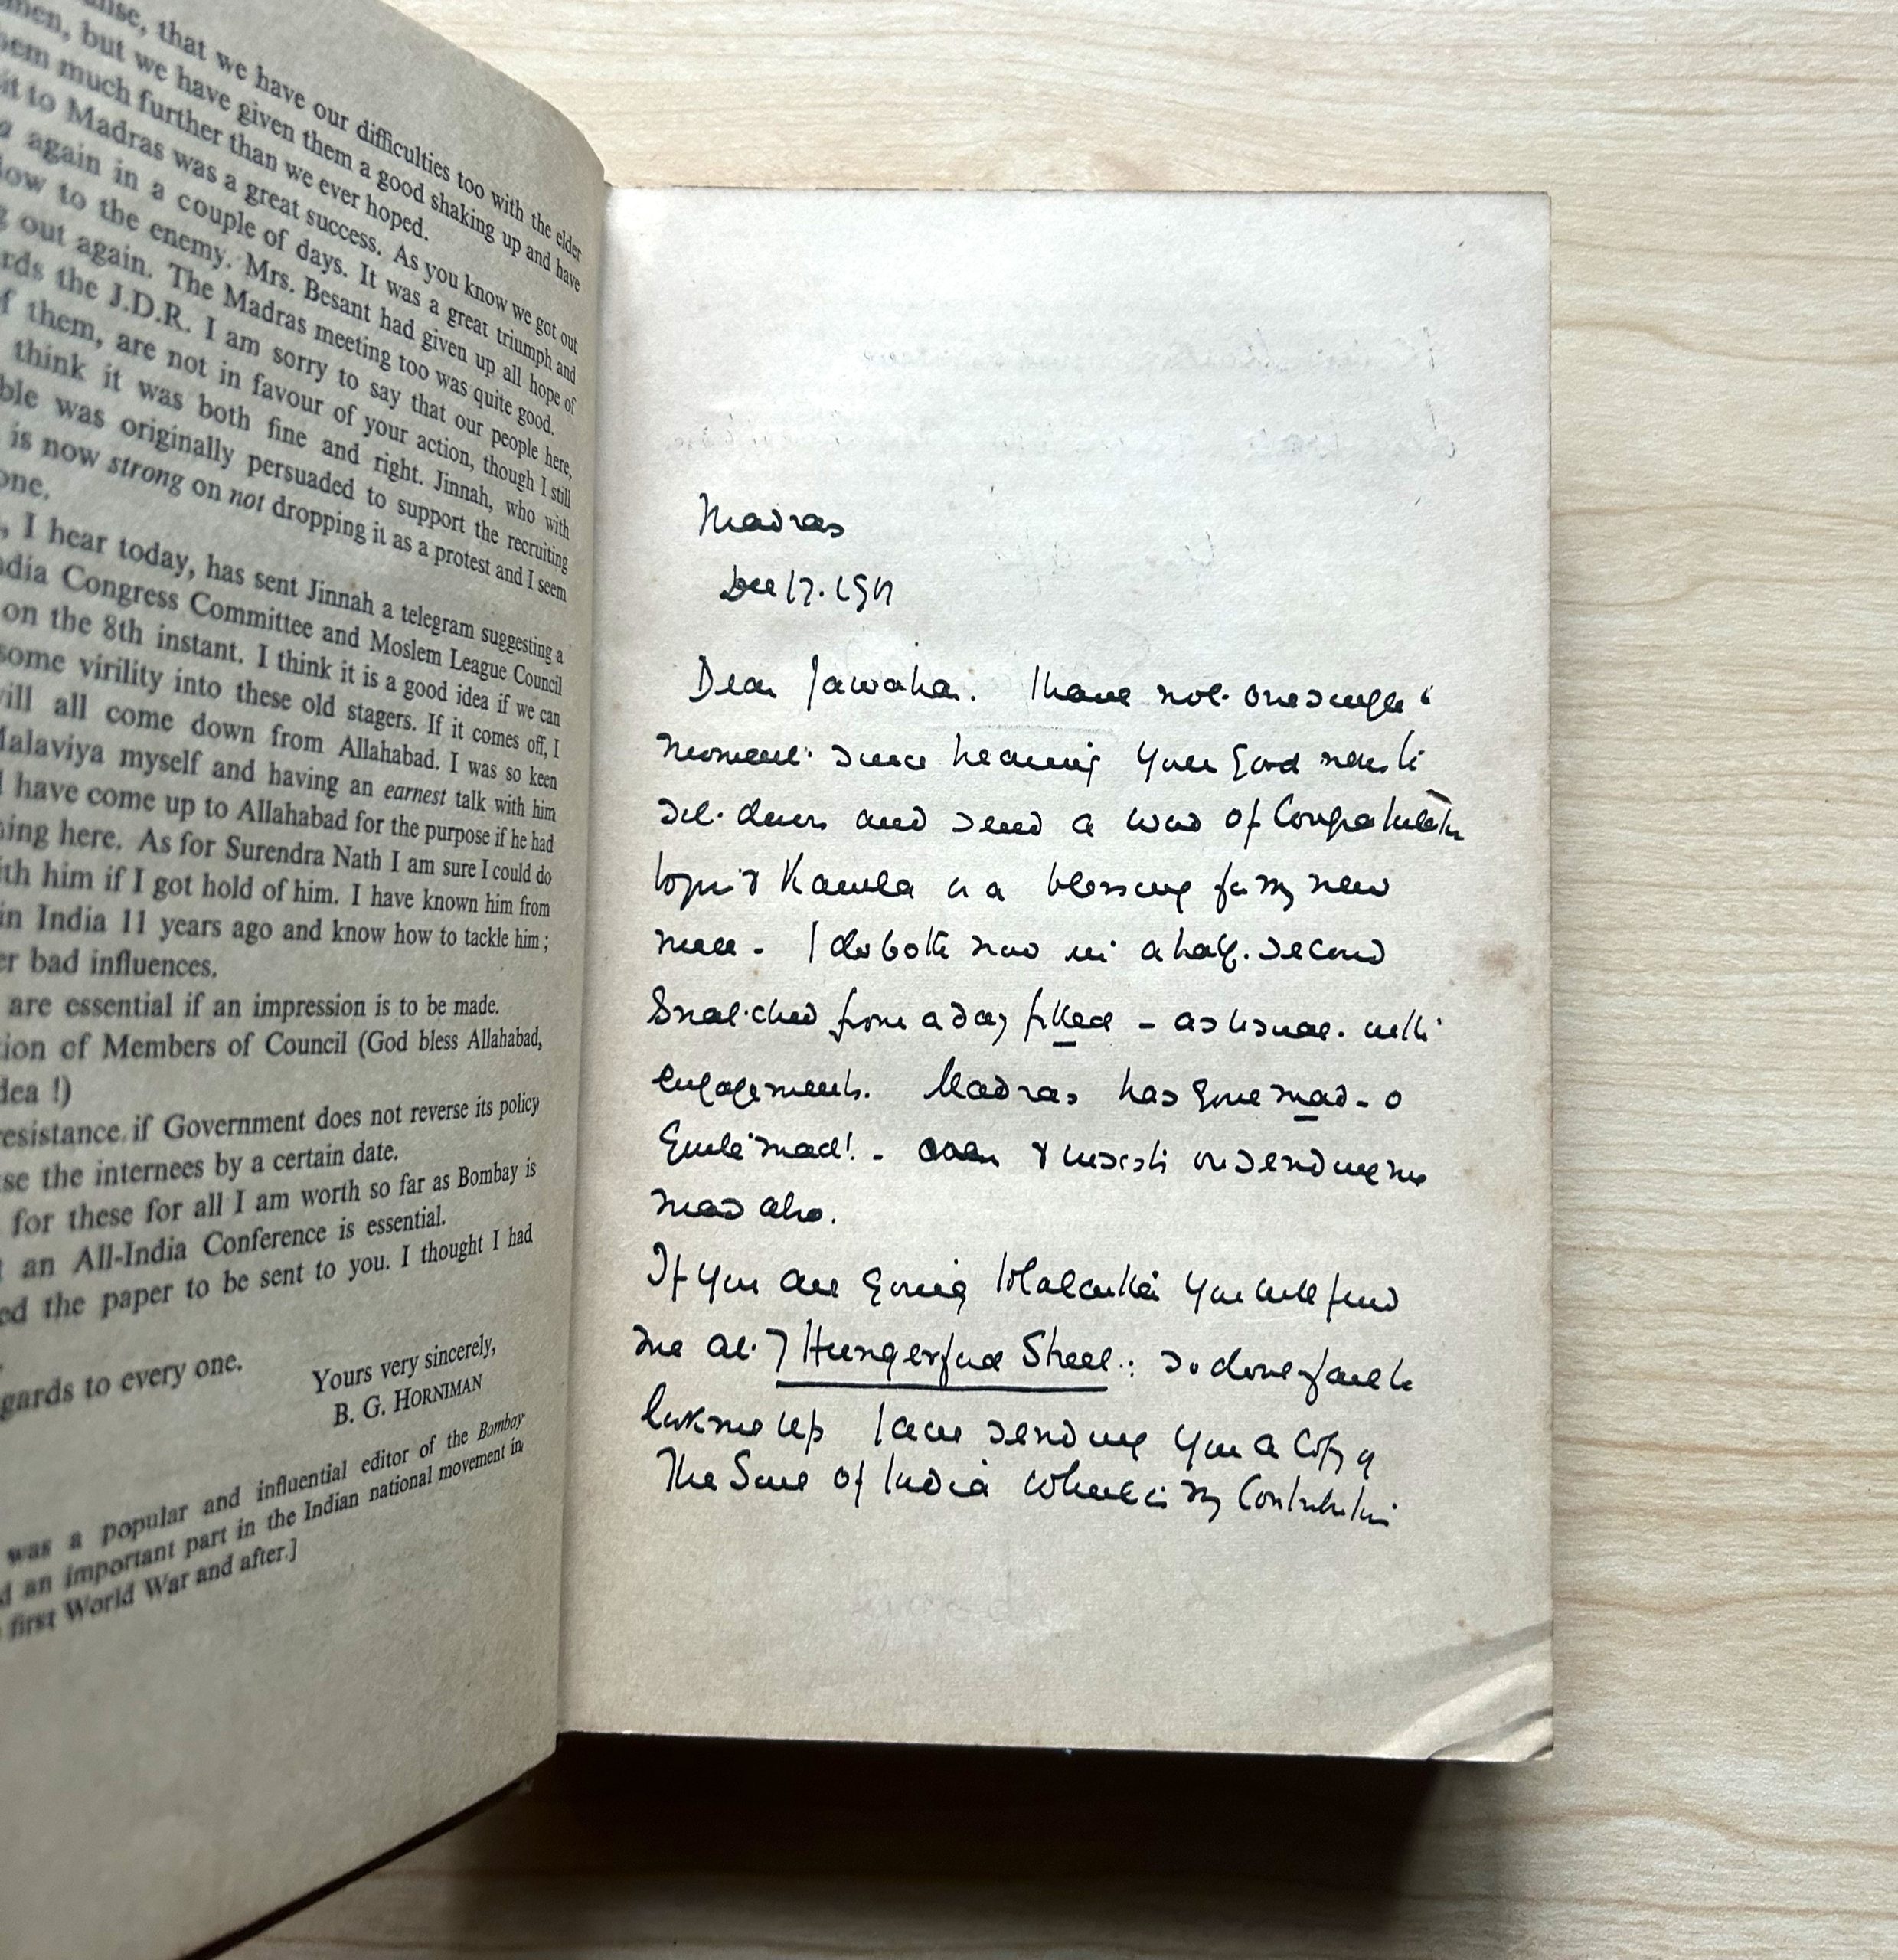 that we have our difficulties too with the elder
but we have given them a good shaking up and have
much further than we ever hoped.
to Madras was a great success. As you know we got out
again in a couple of days. It was a great triumph and
to the enemy. Mrs. Besant had given up all hope of
out again. The Madras meeting too was quite good.
the J.D.R. I am sorry to say that our people here,
of them, are not in favour of your action, though I still
think it was both fine and right. Jinnah, who with
was originally persuaded to support the recruiting
is now strong on not dropping it as a protest and I seem
one.
I hear today, has sent Jinnah a telegram suggesting a
India Congress Committee and Moslem League Council
on the 8th instant. I think it is a good idea if we can
some virility into these old stagers. If it comes off, I
will all come down from Allahabad. I was so keen
Malaviya myself and having an earnest talk with him
I have come up to Allahabad for the purpose if he had
here. As for Surendra Nath I am sure I could do
with him if I got hold of him. I have known him from
in India 11 years ago and know how to tackle him ;
bad influences.
are essential if an impression is to be made.
of Members of Council (God bless Allahabad,
idea !)
resistance if Government does not reverse its policy
the internees by a certain date.
for these for all I am worth so far as Bombay is
an All-India Conference is essential.
the paper to be sent to you. I thought I had
to every one.
Yours very sincerely,
B. G. HORNIMAN
was a popular and influential editor of the Bombay
an important part in the Indian national movement in
first World War and after.]
Madras
Dec 17. 1917
Dear Jawahar. I have not one single
moment since hearing your good news to
sit down and send a word of Congratulation
to you & Kamala and a blessing for my new
niece - I do both now in a half-second
Snatched from a day filled - as usual - with
engagements. Madras has gone mad - O
Quite mad! - & insists on sending me
mad also.
If you are going to Calcutta you will find
me at 7 Hungerford Street: so don't fail to
look me up I am sending you a Copy of
The Soul of India which is my Contribution